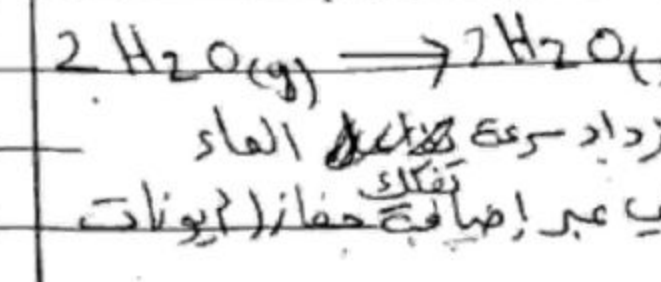 2 H2O(g) → 2H2O(
زداد سرعة الماء
تفكك
عبر إضافة حفاز (أيونات